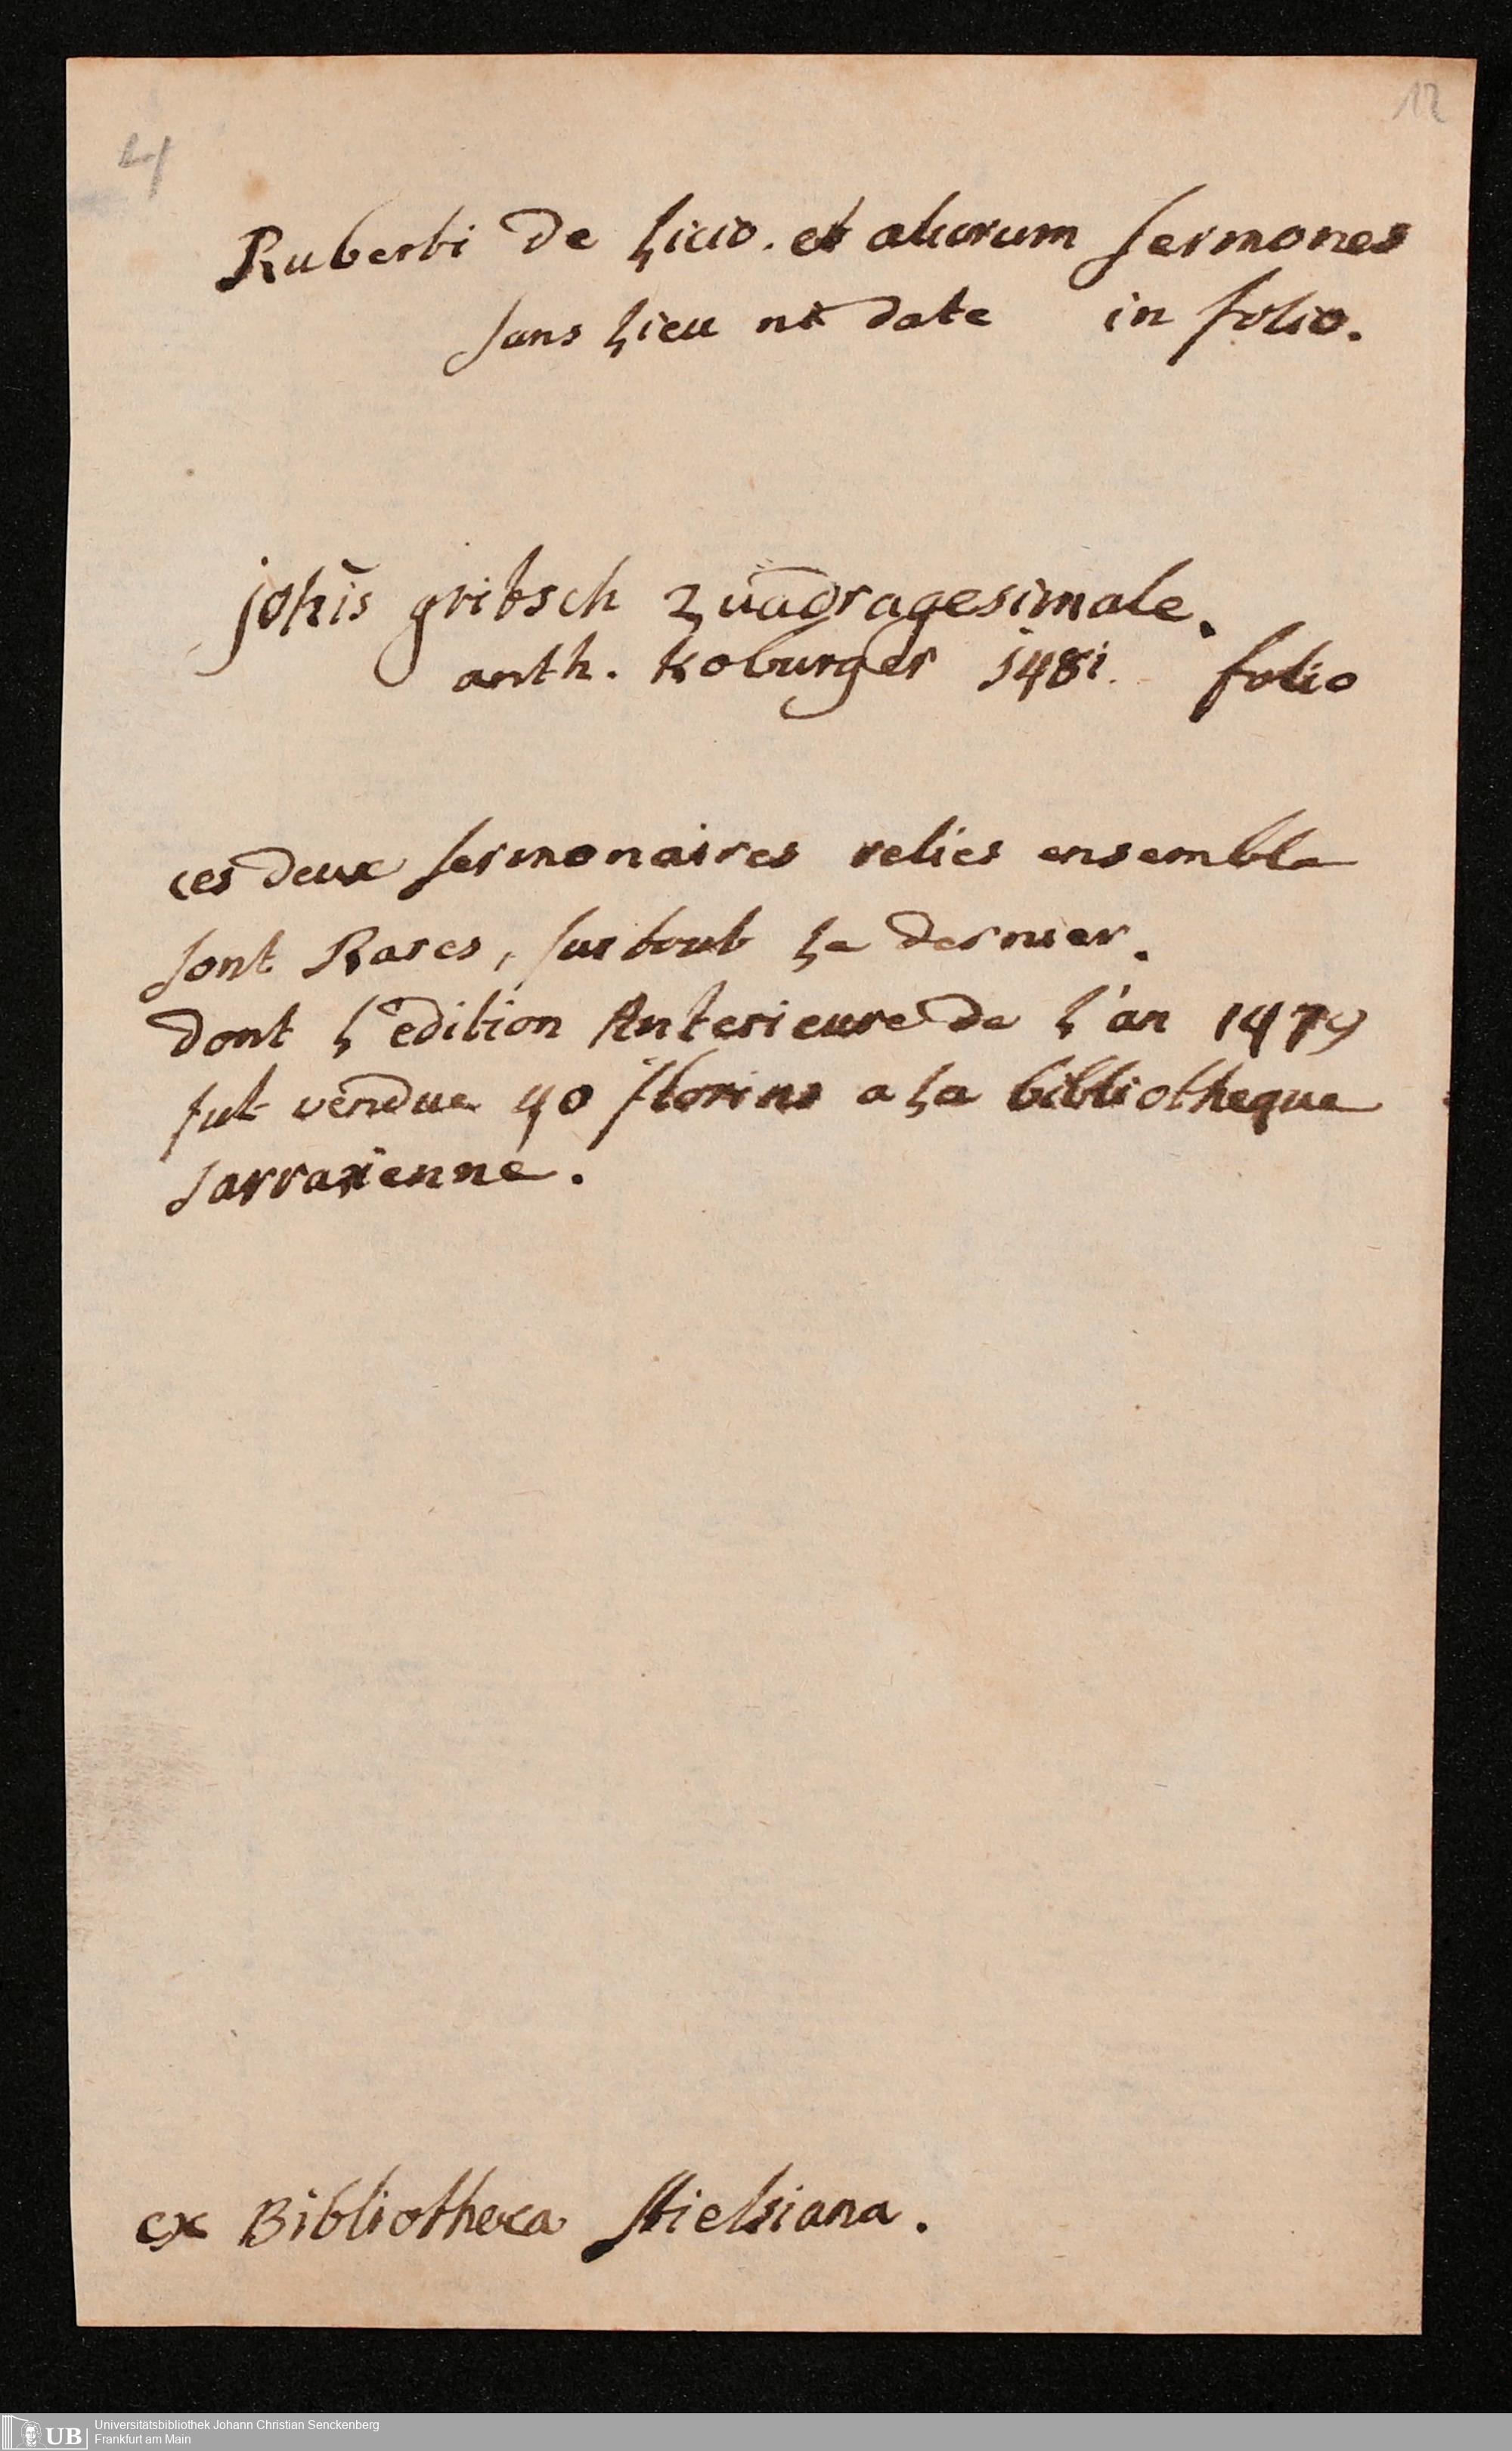 12
4
Ruberti de Licio. et aliorum sermones
sans Lieu ni date in folio.
johis gritsch quadragesimale.
anth. Koburger 1481. folio
ces deux sermonaires relies ensemble
sont Rares, surtout Le dernier.
dont L'edition Anterieure de L'an 1479
fut vendue 40 florins a La bibliotheque
sarraxienne.
ex Bibliotheca Stielsiana.
UB Universitätsbibliothek Johann Christian Senckenberg
Frankfurt am Main